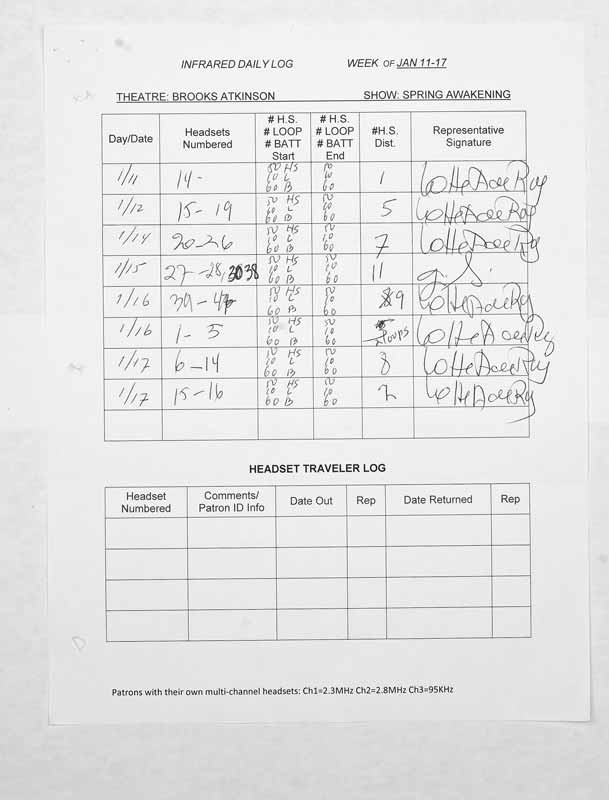 INFRARED DAILY LOG WEEK OF JAN 11-17
THEATRE: BROOKS ATKINSON SHOW: SPRING AWAKENING
Day/Date Headsets Numbered # H.S. # LOOP # BATT Start # H.S. # LOOP # BATT End #H.S. Dist. Representative Signature
1/11 14- 50 HS 10 L 60 B 50 10 60 1
1/12 15-19 50 HS 10 L 60 B 50 10 60 5
1/14 20-26 50 HS 10 L 60 B 50 10 60 7
1/15 27-28, 3038 50 HS 10 L 60 B 50 10 60 11
1/16 39-4 50 HS 10 L 60 B 50 10 60 9
1/16 1-5 50 HS 10 L 60 B 50 10 60 loops
1/17 6-14 50 HS 10 L 60 B 50 10 60 8
1/17 15-16 50 HS 10 L 60 B 50 10 60 2
HEADSET TRAVELER LOG
Headset Numbered Comments/ Patron ID Info Date Out Rep Date Returned Rep
Patrons with their own multi-channel headsets: Ch1=2.3MHz Ch2=2.8MHz Ch3=95KHz